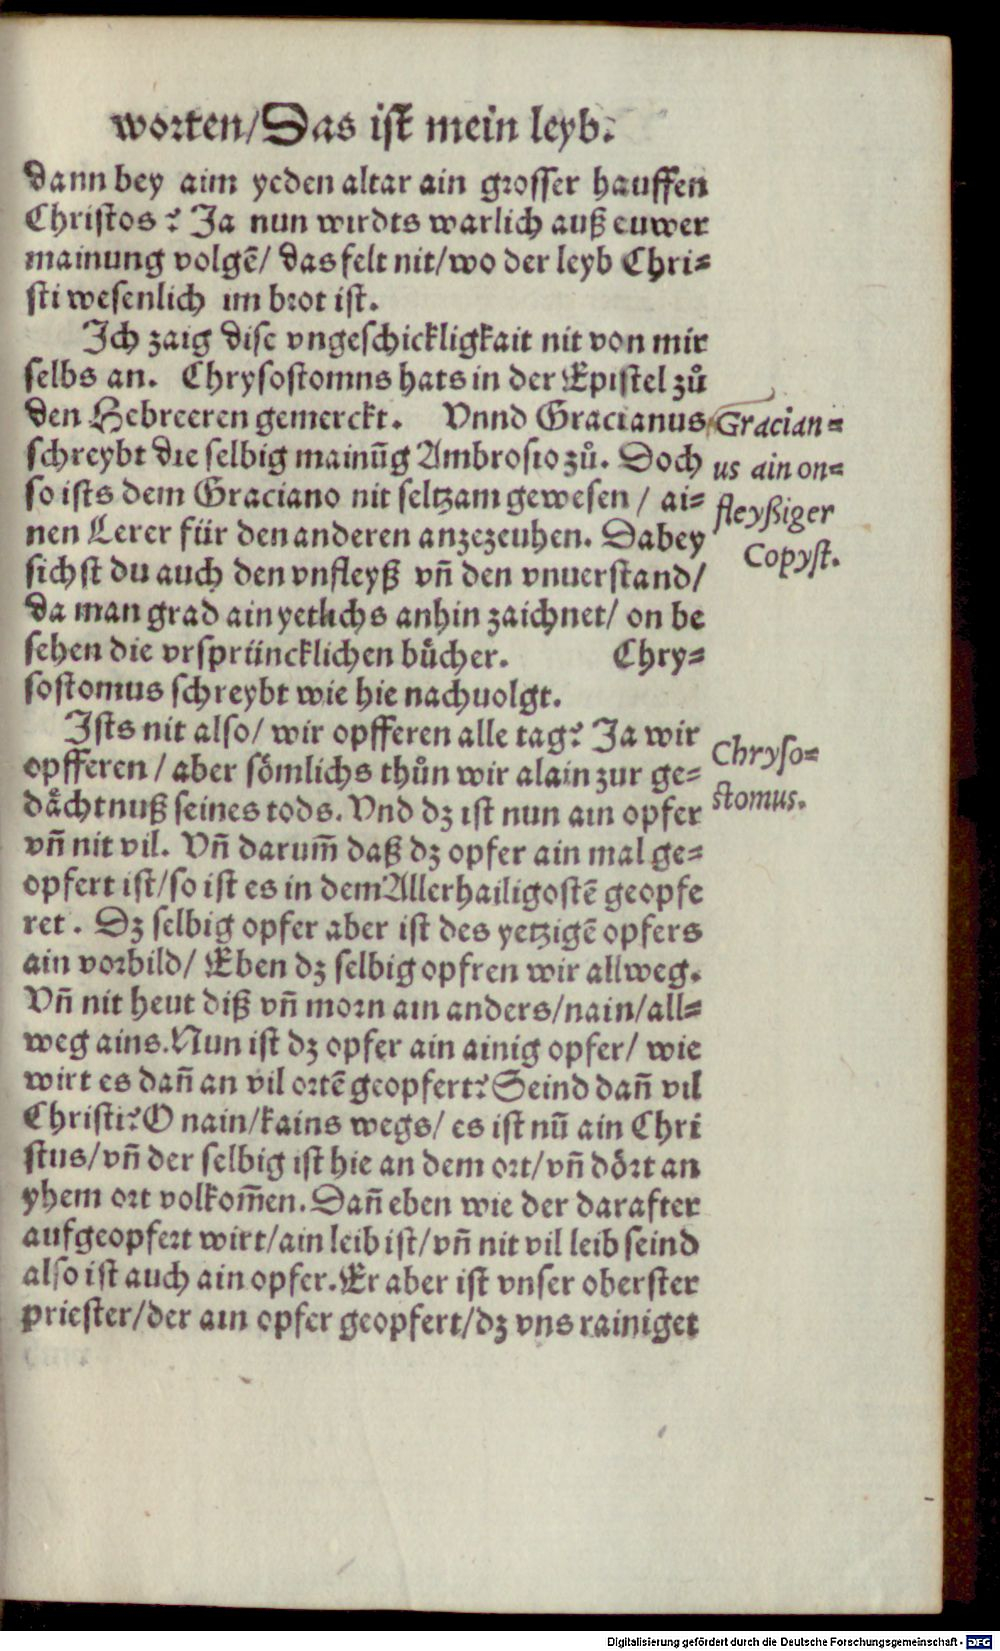 worten/Das ist mein leyb.
dann bey aim yeden altar ain grosser hauffen
Christos? Ja nun wirdts warlich auß euwer
mainung volgē/ das felt nit/wo der leyb Chri⸗
sti wesenlich im brot ist.
Ich zaig dise vngeschickligkait nit von mir
selbs an. Chrysostomns hats in der Epistel zů
den Hebreeren gemerckt. Vnnd Gracianus
Gracian⸗
schreybt die selbig mainūg Ambrosio zů. Doch
us ain on⸗
so ists dem Graciano nit seltzam gewesen / ai⸗
fleyßiger
nen Lerer für den anderen anzezeuhen. Dabey
Copyst.
sichst du auch den vnfleyß vn̄ den vnuerstand/
da man grad ain yetlichs anhin zaichnet/ on be
sehen die vrsprüncklichen bůcher. Chry⸗
sostomus schreybt wie hie nachuolgt.
Ists nit also/ wir opfferen alle tag? Ja wir
Chryso⸗
opfferen / aber sömlichs thůn wir alain zur ge⸗
stomus.
dächtnuß seines tods. Vnd dz ist nun ain opfer
vn̄ nit vil. Vn̄ darum̄ daß dz opfer ain mal ge⸗
opfert ist/so ist es in dem Allerhailigostē geopfe
ret. Dz selbig opfer aber ist des yetzigē opfers
ain vorbild/ Eben dz selbig opfren wir allweg.
Vn̄ nit heut diß vn̄ morn ain anders/nain/all⸗
weg ains. Nun ist dz opfer ain ainig opfer/ wie
wirt es dan̄ an vil ortē geopfert? Seind dan̄ vil
Christi? O nain/kains wegs/ es ist nū ain Chri
stus/vn̄ der selbig ist hie an dem ort/vn̄ dört an
yhem ort volkom̄en. Dan̄ eben wie der darafter
aufgeopfert wirt/ain leib ist/vn̄ nit vil leib seind
also ist auch ain opfer. Er aber ist vnser oberster
priester/der ain opfer geopfert/dz vns rainiget
Digitalisierung gefördert durch die Deutsche Forschungsgemeinschaft - DFG